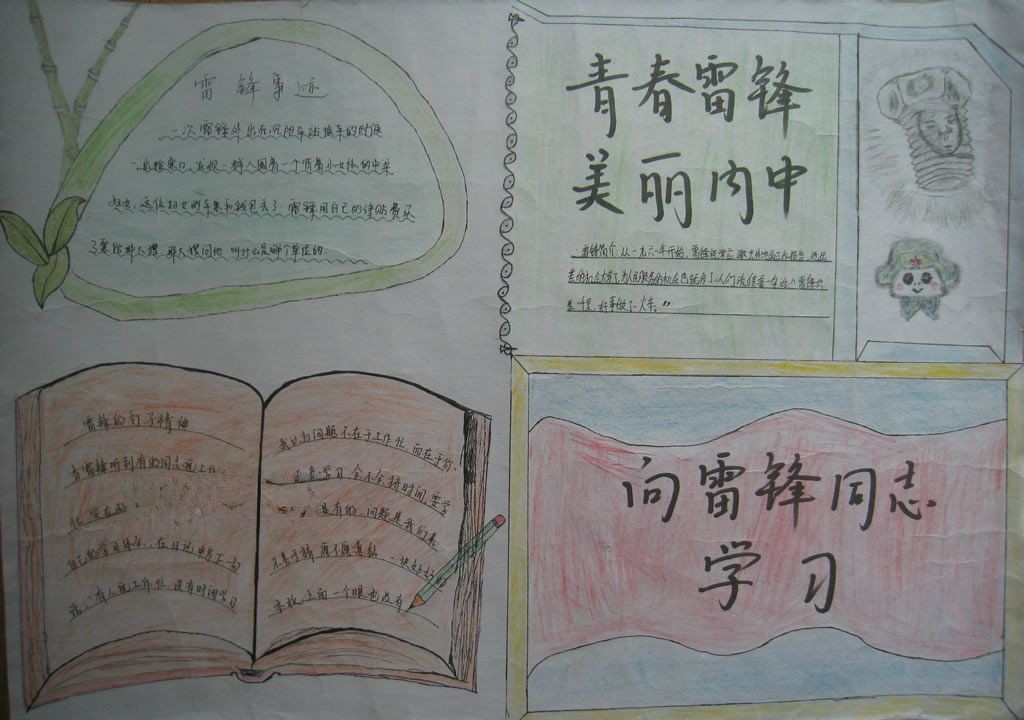 雷锋事迹
一次雷锋外出在沈阳车站换车的时候
一出检票口,发现一群人围着一个背着小女孩的中年
妇女,这位妇女的车票和钱包丢了.雷锋用自己的津贴费买
了票给那人,那人問他叫什么是哪个单位的.
青春雷锋
美丽内中
雷锋简介:从一九六一年开始,雷锋经常应邀去外地作报告,他出
差的机会多了,为人民服务的机会也就多了,人们流传着一句话"雷锋出
差一千里,好事做了一火车。"
雷锋的钉子精神
当雷锋听到有的同志说工作
忙
自己的学习体会,在日记中写下一句
话:有人说工作忙,没有时间学习
我认为问题不在于工作忙,而在于你
愿意学习,会不会挤时间,要学
是有的,问题是我们善
不善于挤,愿不愿意钻.一块好好
木板,上面一个眼也没有
向雷锋同志
学习